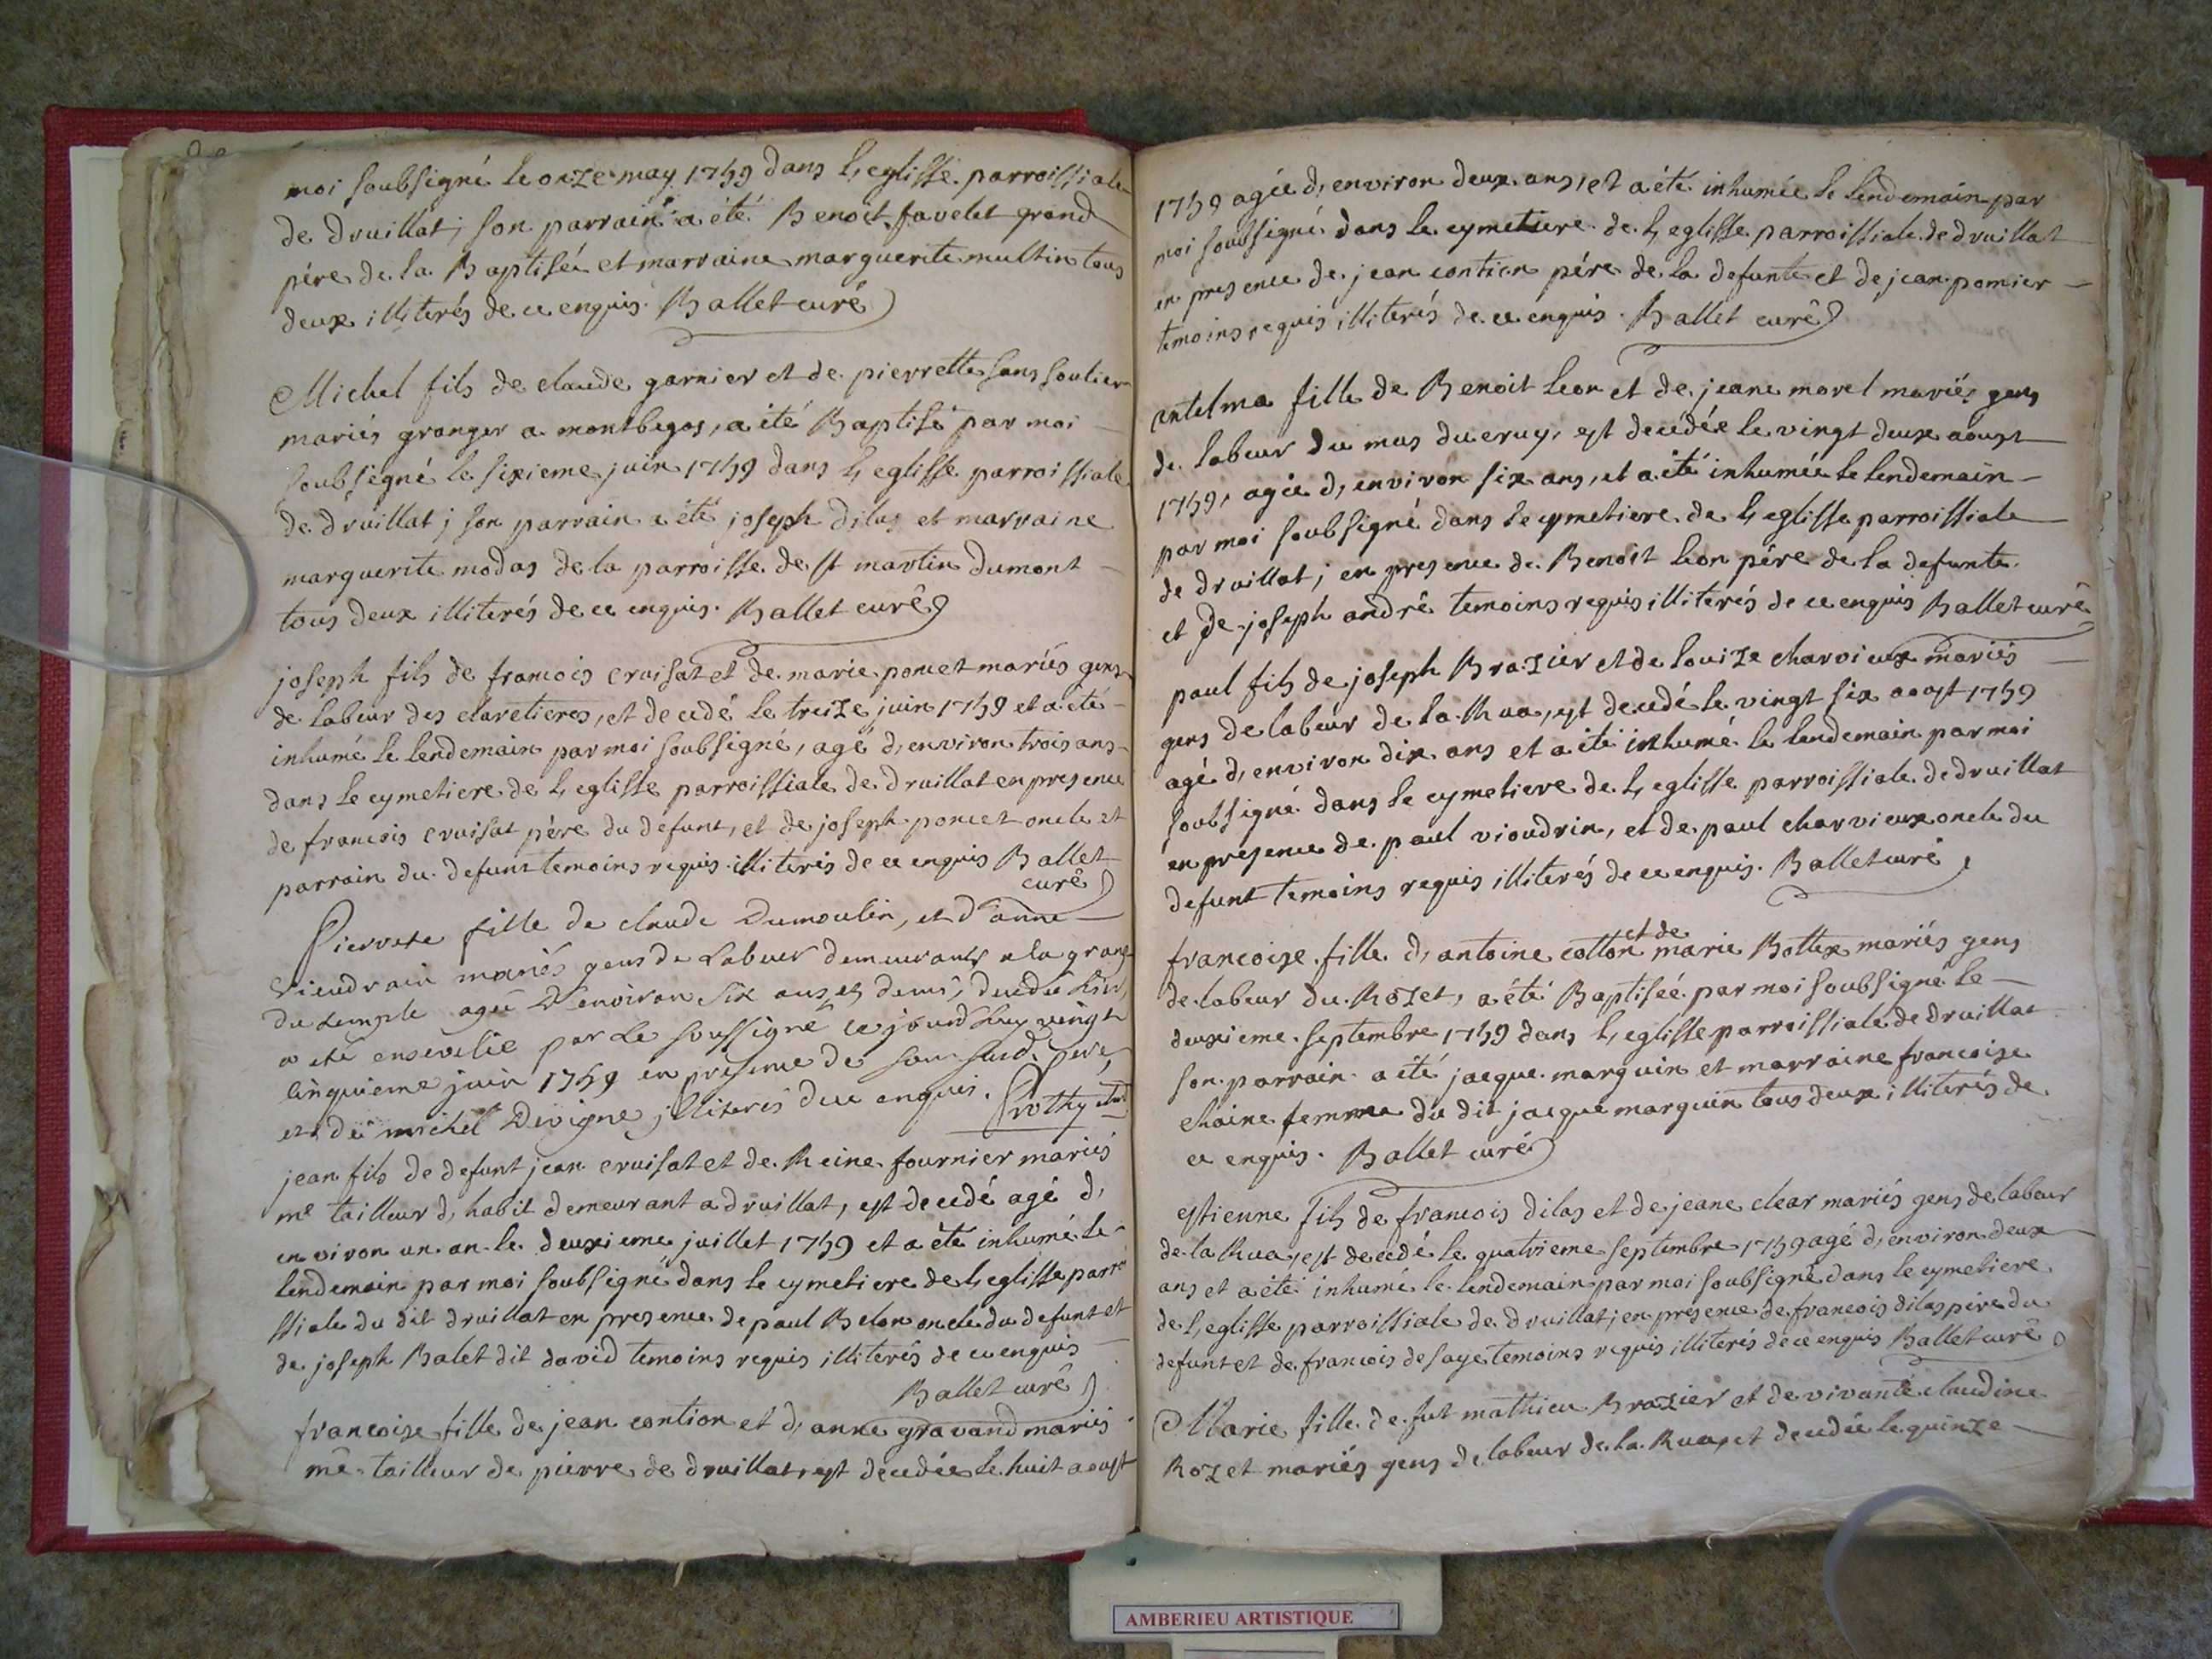 moi soubsigné le onze may 1759 dans l, eglisse parroissiale
de druillat ; son parrain a été Benoit favelet grand
pére de la Baptisée et marraine marguerite multin tous
deux illiterés de ce enquis. Ballet curé
Michel fils de claude garnier et de pierrette sans soulier
mariés granger a montbegos, a été Baptisé par moi
soubsigné le sixieme juin 1759 dans l, eglisse parroissiale
de druillat ; son parrain a été joseph dilas et marraine
marguerite modas de la parroisse de st martin dumont
tous deux illiterés de ce enquis. Ballet curé
joseph fils de francois cruisat et de marie poncet mariés gens
de labeur des claretieres, et decedé le treize juin 1759 et a été
inhumé le lendemain par moi soubsigné, agé d, environ trois ans
dans le cymetiere de l, eglisse parroissiale de druillat en presence
de francois cruisat père du defunt, et de joseph poncet oncle et
parrain du defunt temoins requis illiterés de ce enquis Ballet
curé
Pierrete fille de claude Dumoulin, et d'anne
Vieudrain mariés gens de Labeur demeurants a la grange
du temple agée D'environ six ans et demi, decedée hier,
a eté ensevelie par Le soussigné ce jourd'huy vingt
cinquieme juin 1759 en presence de son susd. pere,
et de michel Devigne illiterés de ce enquis. Prothy
jean fils de defunt jean cruisat et de Reine fournier mariés
me tailleur d, habit demeurant a druillat, est decedé agé d,
environ un an le deuxieme juillet 1759 et a été inhumé le
lendemain par moi soubsigné dans le cymetiere de l, eglisse parroi
ssiale du dit druillat en presence de paul Belon oncle du defunt et
de joseph Balet dit david temoins requis illiterés de ce enquis
Ballet curé
francoise fille de jean contion et d, anne gravand mariés
me tailleur de pierre de druillat, est decedée le huit aoust
1759 agée d, environ deux ans, et a été inhumée le lendemain par
moi soubsigné dans le cymetiere de l, eglisse parroissiale de druillat
en presence de jean contion pére de la defunte et de jean pomier
temoins requis illiterés de ce enquis. Ballet curé
entelma fille de Benoit leon et de jeane morel mariés gens
de labeur du mas ducruy, est decedée le vingt deux aoust
1759, agée d, environ six ans, et a été inhumée le lendemain
par moi soubsigné dans le cymetiere de l, eglisse parroissiale
de druillat ; en presence de Benoit leon pére de la defunte
et de joseph andré temoins requis illiterés de ce enquis Ballet curé
paul fils de joseph Brazier et de louize charvieux mariés
gens de labeur de la Rua, est decedé le vingt six aoust 1759
agé d, environ dix ans et a été inhumé le lendemain par moi
soubsigné dans le cymetiere de l, eglisse parroissiale de druillat
en presence de paul vioudrin, et de paul charvieux oncle du
defunt temoins requis illiterés de ce enquis. Ballet curé
francoise fille d, antoine cotton et de marie Bottex mariés gens
de labeur du Rozet, a été Baptisée par moi soubsigné le
deuxieme septembre 1759 dans l, eglisse parroissiale de druillat
son parrain a été jacque marguin et marraine francoise
chaine femme du dit jacque marguin tous deux illiterés de
ce enquis. Ballet curé
estienne fils de francois dilas et de jeane clear mariés gens de labeur
de la Rua, est decedé le quatrieme septembre 1759 agé d, environ deux
ans et a été inhumé le lendemain par moi soubsigné dans le cymetiere
de l, eglisse parroissiale de druillat ; en présence de francois dilas pére du
defunt et de francois desaye temoins requis illiterés de ce enquis Ballet curé
Marie fille de fut mathieu Brazier et de vivante claudine
Rozet mariés gens de labeur de la Rua, et decedée le quinze
AMBERIEU ARTISTIQUE